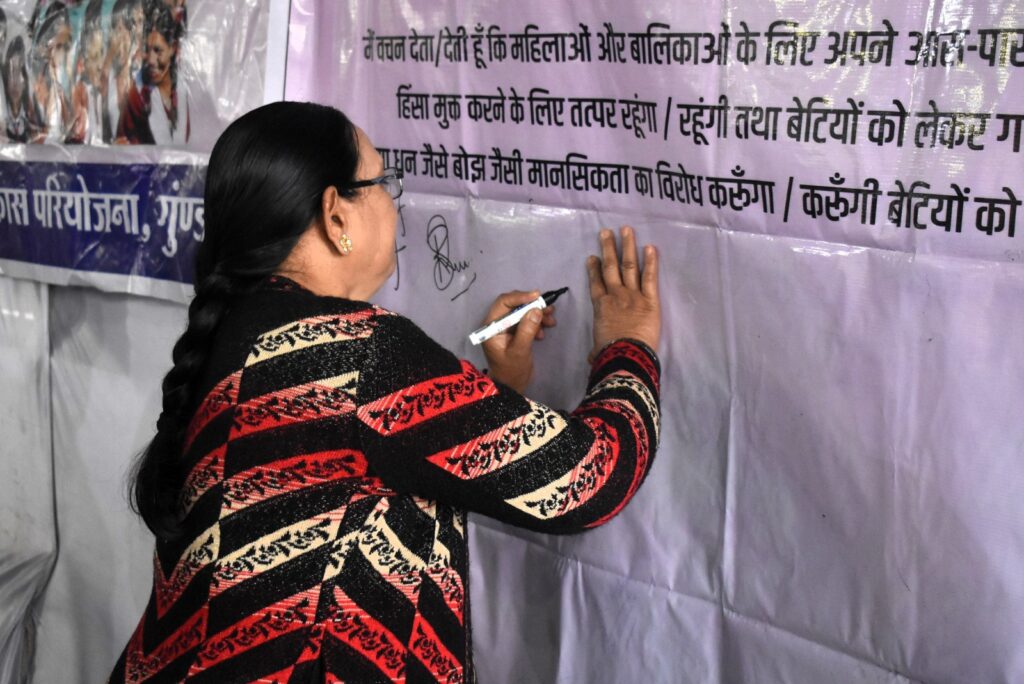 में वचन देता/देती हूँ कि महिलाओं और बालिकाओं के लिए अपने आस-पास
हिंसा मुक्त करने के लिए तत्पर रहूंगा / रहूंगी तथा बेटियों को लेकर
धन जैसे बोझ जैसी मानसिकता का विरोध करूँगा / करूँगी बेटियों को
परियोजना,